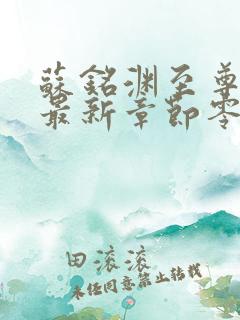 蘇銘淵至尊
最新章節零
田滚滚
未经同意禁止转载